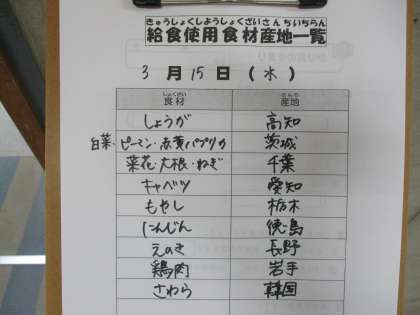 きゅうしょくしようしょくざいさんちいちらん
給食使用食材産地一覧
3月15日(水)
しょくざい さんち
食材 産地
しょうが 高知
白菜・ピーマン・赤黄パプリカ 茨城
菜花・大根・ねぎ 千葉
キャベツ 愛知
もやし 栃木
にんじん 徳島
えのき 長野
鶏肉 岩手
さわら 韓国